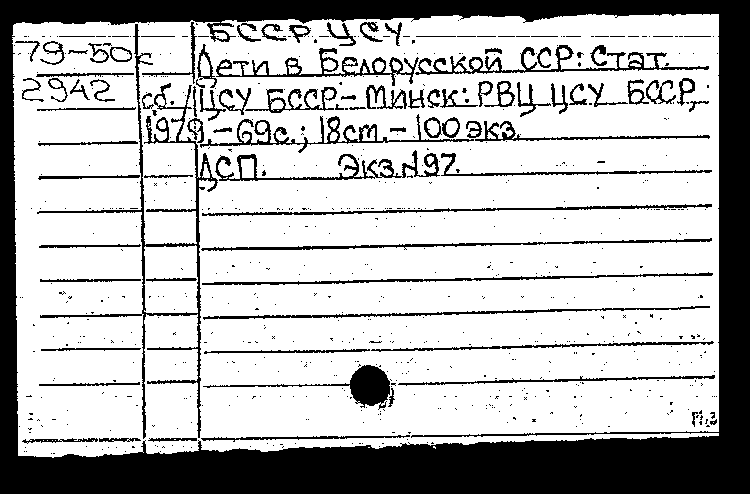 БССР. ЦСУ.
79-50к Дети в Белорусской ССР: Стат.
2942 сб. / ЦСУ БССР.- Минск: РВЦ ЦСУ БССР,
1979.- 69с.; 18см.- 100 экз.
ДСП. Экз.№97.